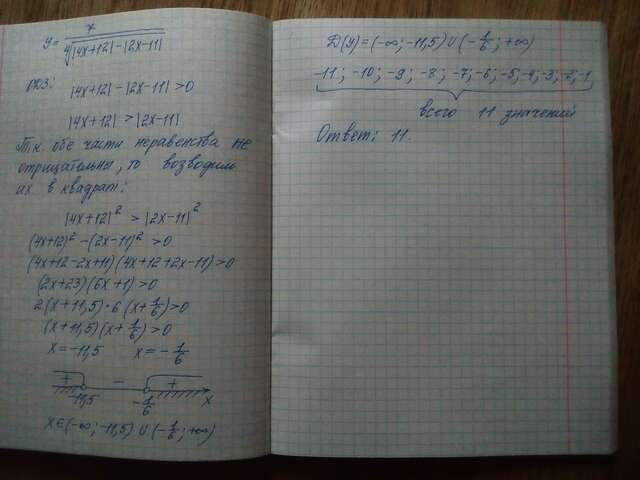 y = 7 / ∜(|4x+12| - |2x-11|)
ОДЗ:
|4x+12| - |2x-11| > 0
|4x+12| > |2x-11|
Т.к. обе части неравенства не
отрицательны, то возводим
их в квадрат:
|4x+12|² > |2x-11|²
(4x+12)² - (2x-11)² > 0
(4x+12-2x+11)(4x+12+2x-11) > 0
(2x+23)(6x+1) > 0
2(x+11,5)·6(x+1/6) > 0
(x+11,5)(x+1/6) > 0
x = -11,5 x = -1/6
+ - +
-11,5 -1/6 x
x∈(-∞; -11,5) ∪ (-1/6; +∞)
D(y) = (-∞; -11,5) ∪ (-1/6; +∞)
-11; -10; -9; -8; -7; -6; -5; -4; -3; -2; -1
всего 11 значений
Ответ: 11.